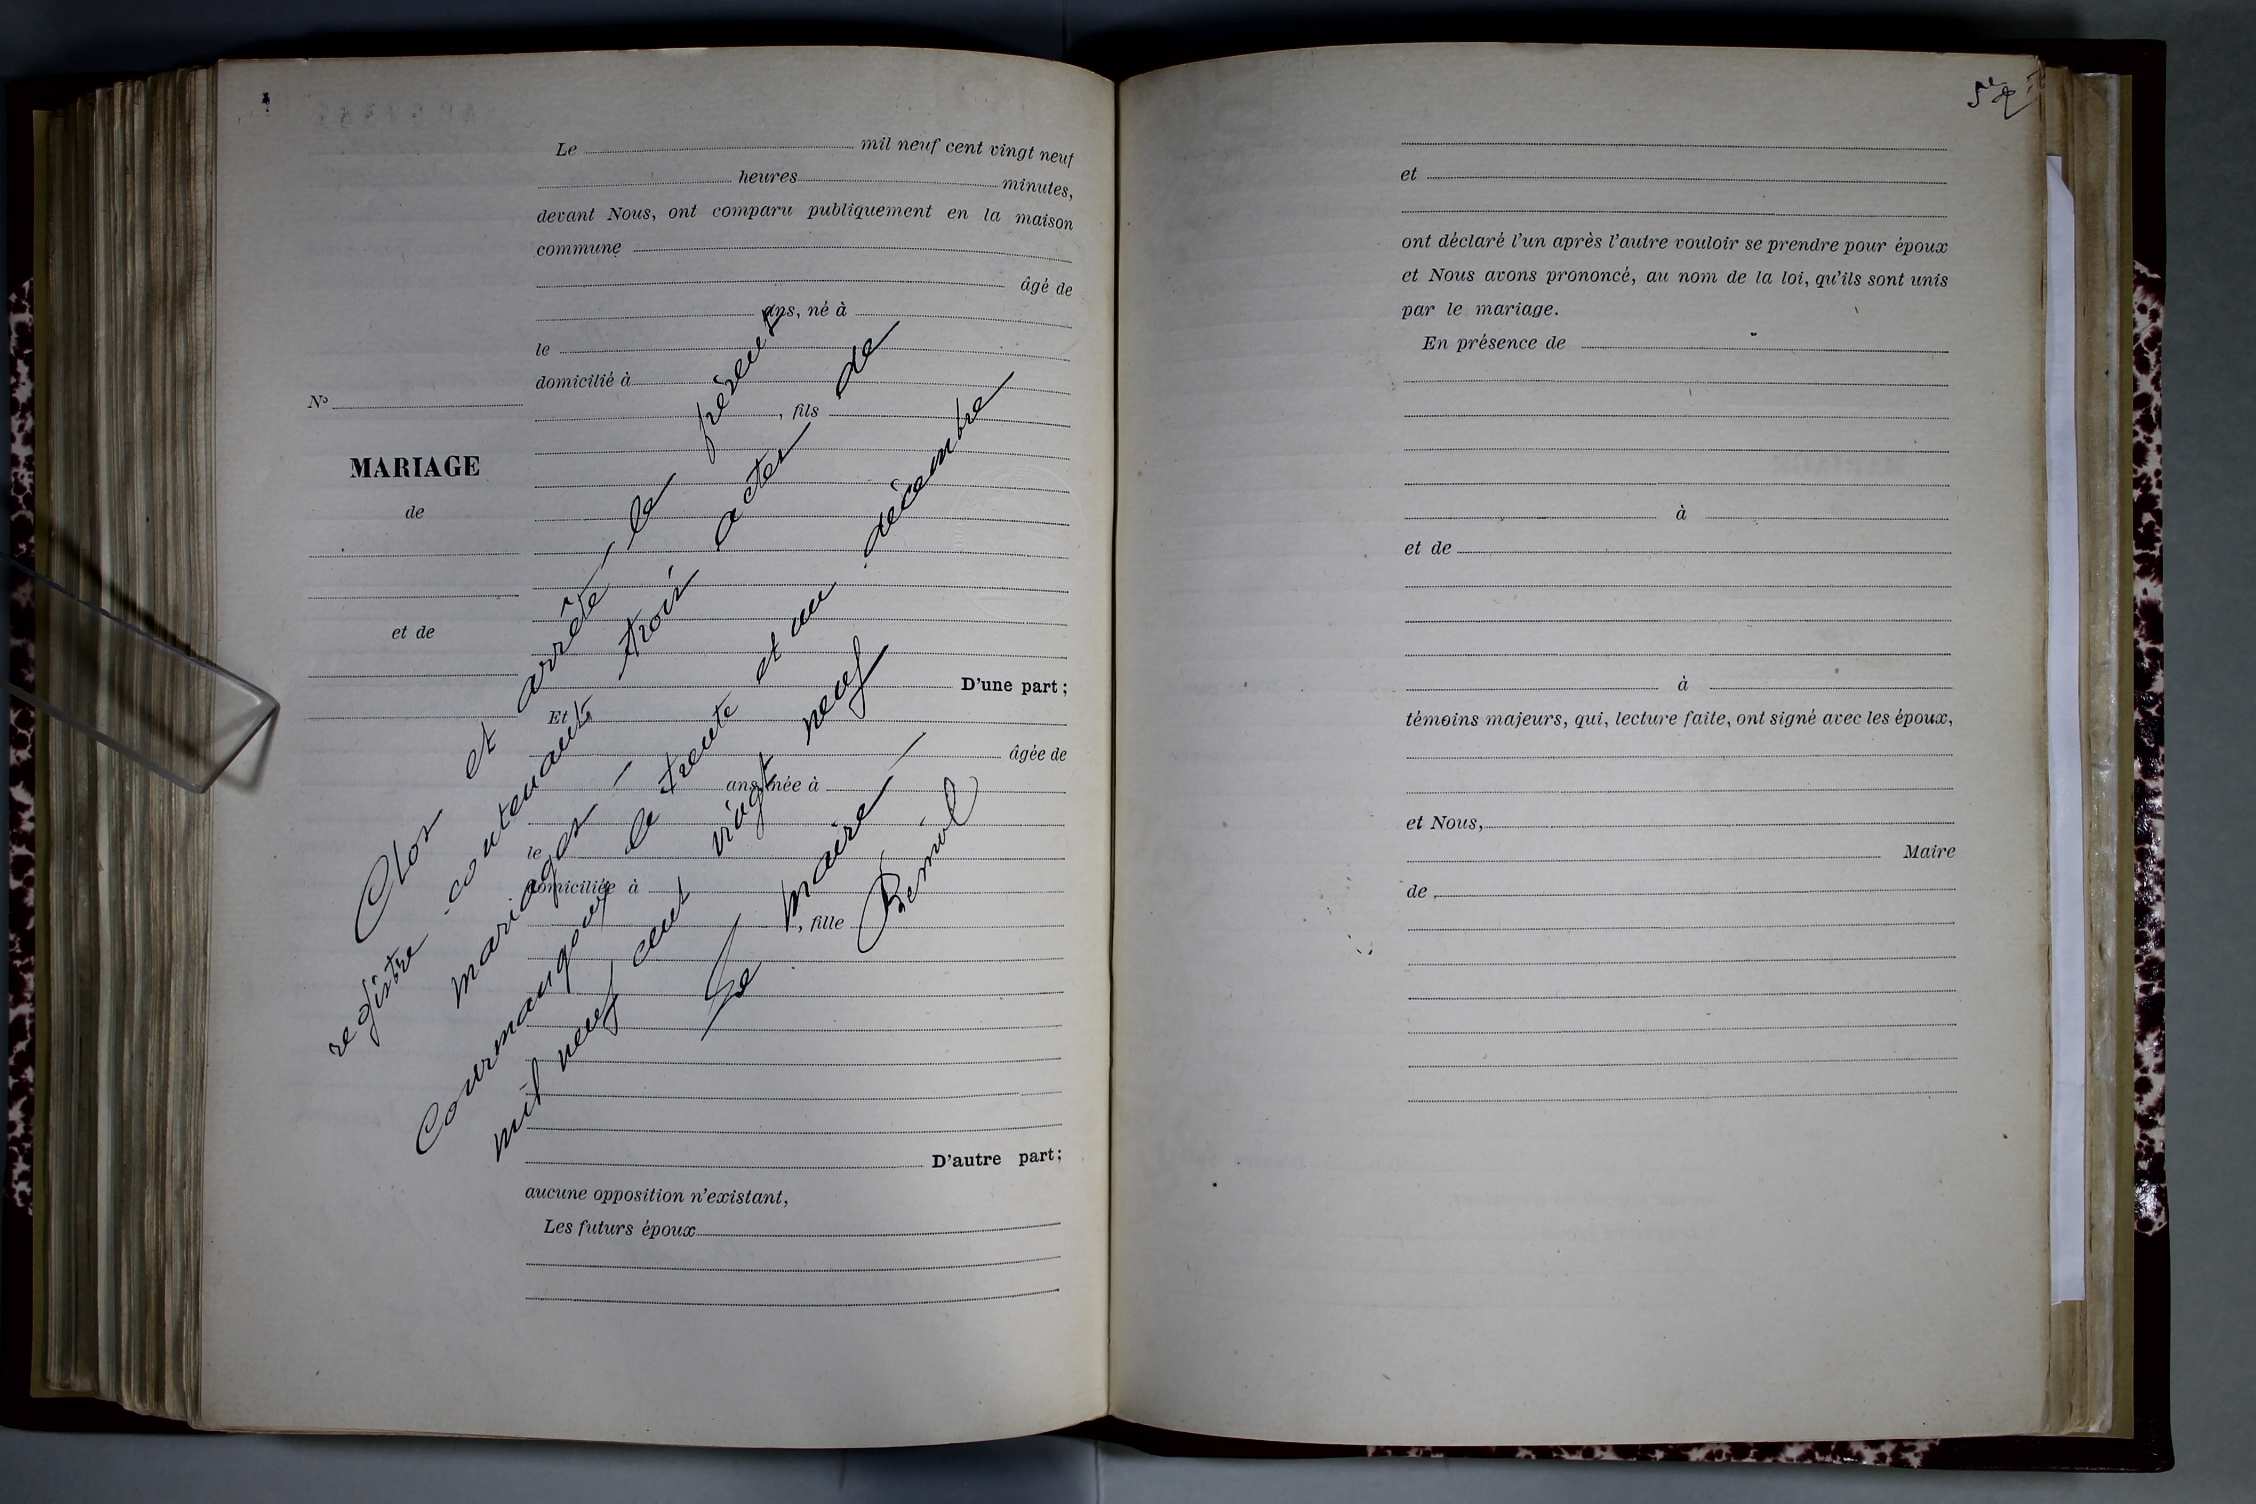 Le mil neuf cent vingt neuf
heures minutes,
devant Nous, ont comparu publiquement en la maison
commune
âgé de
ans, né à
le
domicilié à
, fils
N°
MARIAGE
de
et de
D'une part ;
Et
âgée de
ans, née à
le
domiciliée à
, fille
D'autre part ;
aucune opposition n'existant,
Les futurs époux
Clos et arrêté le présent
registre contenant trois actes de
mariages
Courmangoux le trente et un décembre
mil neuf cent vingt neuf
Le maire
et
ont déclaré l'un après l'autre vouloir se prendre pour époux
et Nous avons prononcé, au nom de la loi, qu'ils sont unis
par le mariage.
En présence de
à
et de
à
témoins majeurs, qui, lecture faite, ont signé avec les époux,
et Nous,
Maire
de